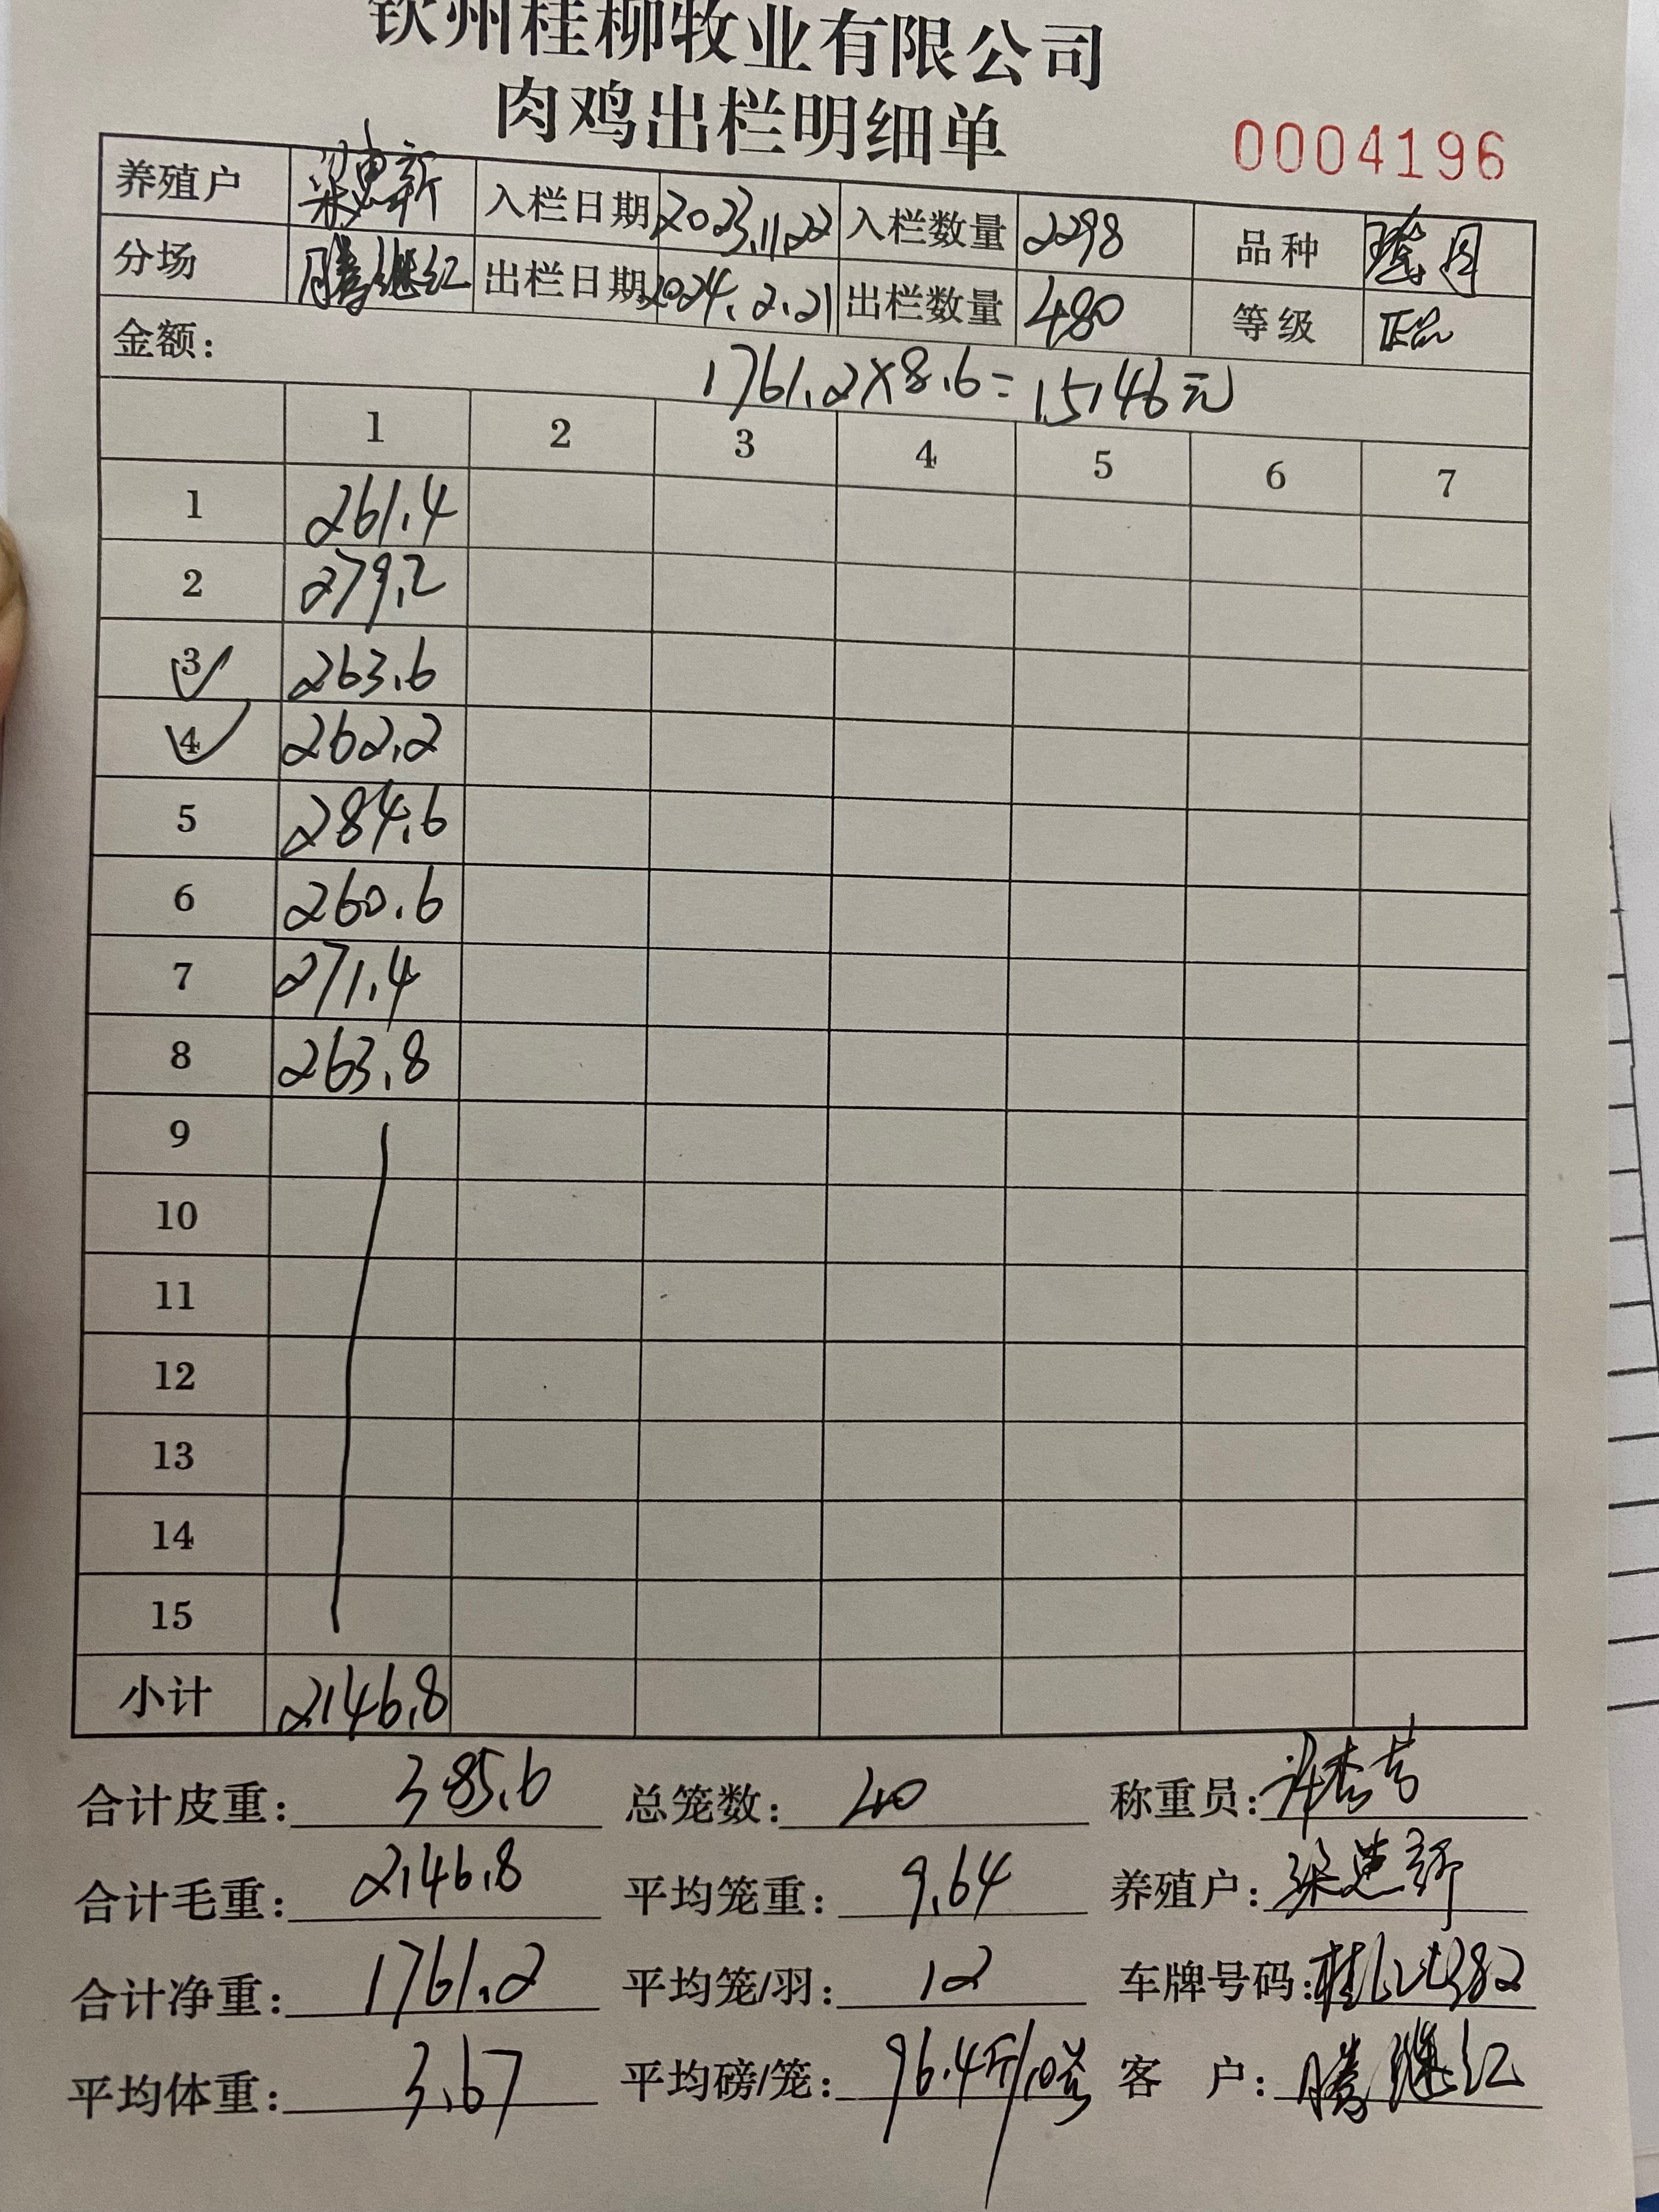 钦州桂柳牧业有限公司
肉鸡出栏明细单
0004196
养殖户 梁惠新 入栏日期 2023.11.22 入栏数量 2298 品种
分场 腾继红 出栏日期 2024.2.21 出栏数量 480 等级 正品
金额: 1761.2×8.6=15146元
1 2 3 4 5 6 7
1 261.4
2 279.2
3 263.6
4 262.2
5 284.6
6 260.6
7 271.4
8 263.8
9
10
11
12
13
14
15
小计 2146.8
合计皮重: 385.6 总笼数: 40 称重员:
合计毛重: 2146.8 平均笼重: 9.64 养殖户: 梁惠新
合计净重: 1761.2 平均笼/羽: 12 车牌号码:
平均体重: 3.67 平均磅/笼: 96.4斤/10笼 客 户: 腾继红